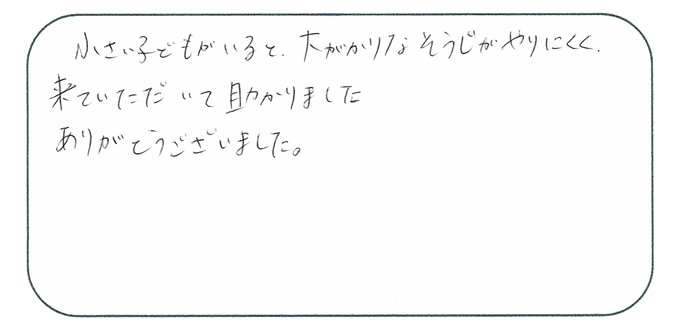 小さい子どもがいると、大がかりなそうじがやりにくく、
来ていただいて助かりました
ありがとうございました。